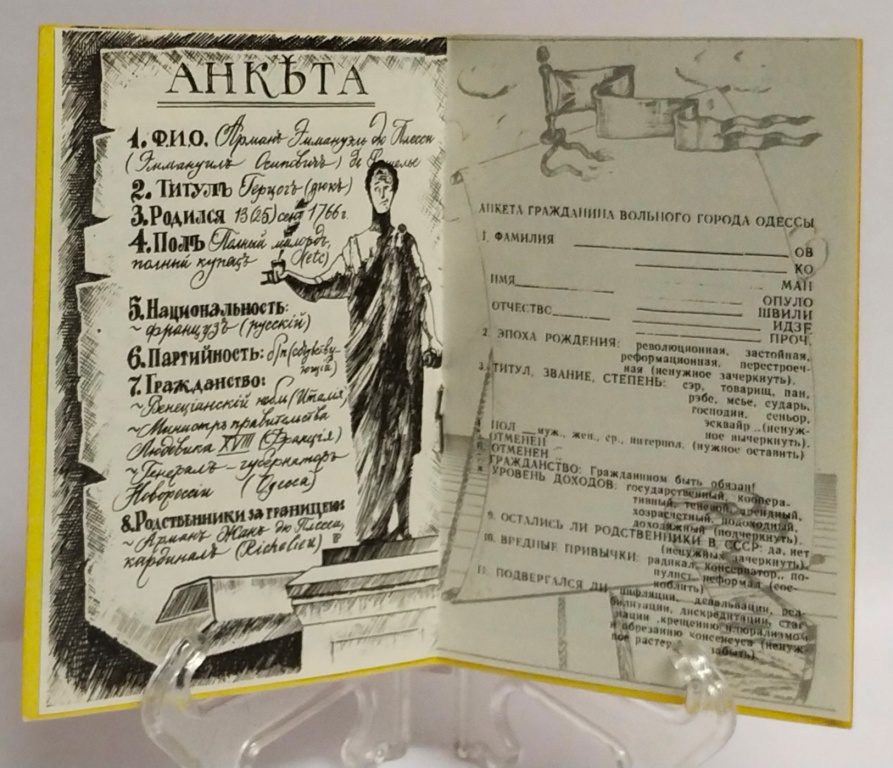 АНКѢТА
1. Ф.И.О. Арманъ Эммануэль дю Плесси
(Эммануилъ Осиповичъ) де Ришелье
2. Титулъ Герцогъ (дюкъ)
3. Родился 13(25) сент 1766 г.
4. Полъ Полный милордъ,
полный купецъ (etc)
5. Национальность:
~ французъ (русскій)
6. Партийность: б/п (сочувству-
ющій)
7. Гражданство:
~ Венеціанскій нобль (Италія)
~ Министръ правительства
Людовика XVIII (Франція)
~ Генералъ-губернаторъ
Новороссіи (Одесса)
8. Родственники за границей:
~ Арманъ Жанъ дю Плесси,
кардиналъ (Richelieu)
АНКЕТА ГРАЖДАНИНА ВОЛЬНОГО ГОРОДА ОДЕССЫ
1. ФАМИЛИЯ ОВ
КО
ИМЯ МАН
ОПУЛО
ОТЧЕСТВО ШВИЛИ
ИДЗЕ
ПРОЧ.
2. ЭПОХА РОЖДЕНИЯ: революционная, застойная,
реформационная, перестроеч-
ная (ненужное зачеркнуть).
3. ТИТУЛ, ЗВАНИЕ, СТЕПЕНЬ: сэр, товарищ, пан,
рэбе, мсье, сударь,
господин, сеньор,
эсквайр ..(ненуж-
ное вычеркнуть).
4. ПОЛ __ муж., жен., ср., интерпол. (нужное оставить)
ОТМЕНЕН
ОТМЕНЕН
ГРАЖДАНСТВО: Гражданином быть обязан!
УРОВЕНЬ ДОХОДОВ: государственный, коопера-
тивный, теневой, арендный,
хозрасчетный, подоходный,
доходяжный (подчеркнуть).
9. ОСТАЛИСЬ ЛИ РОДСТВЕННИКИ В СССР: да, нет
(ненужных зачеркнуть).
10. ВРЕДНЫЕ ПРИВЫЧКИ: радикал, консерватор,, по-
пулист, неформал (сос-
коблить)
11. ПОДВЕРГАЛСЯ ЛИ
инфляции, девальвации, реа-
билитации, дискредитации, стаг-
нации ,крещению плюрализмом
и обрезанию консенсуса (ненуж-
ное растер забыть)